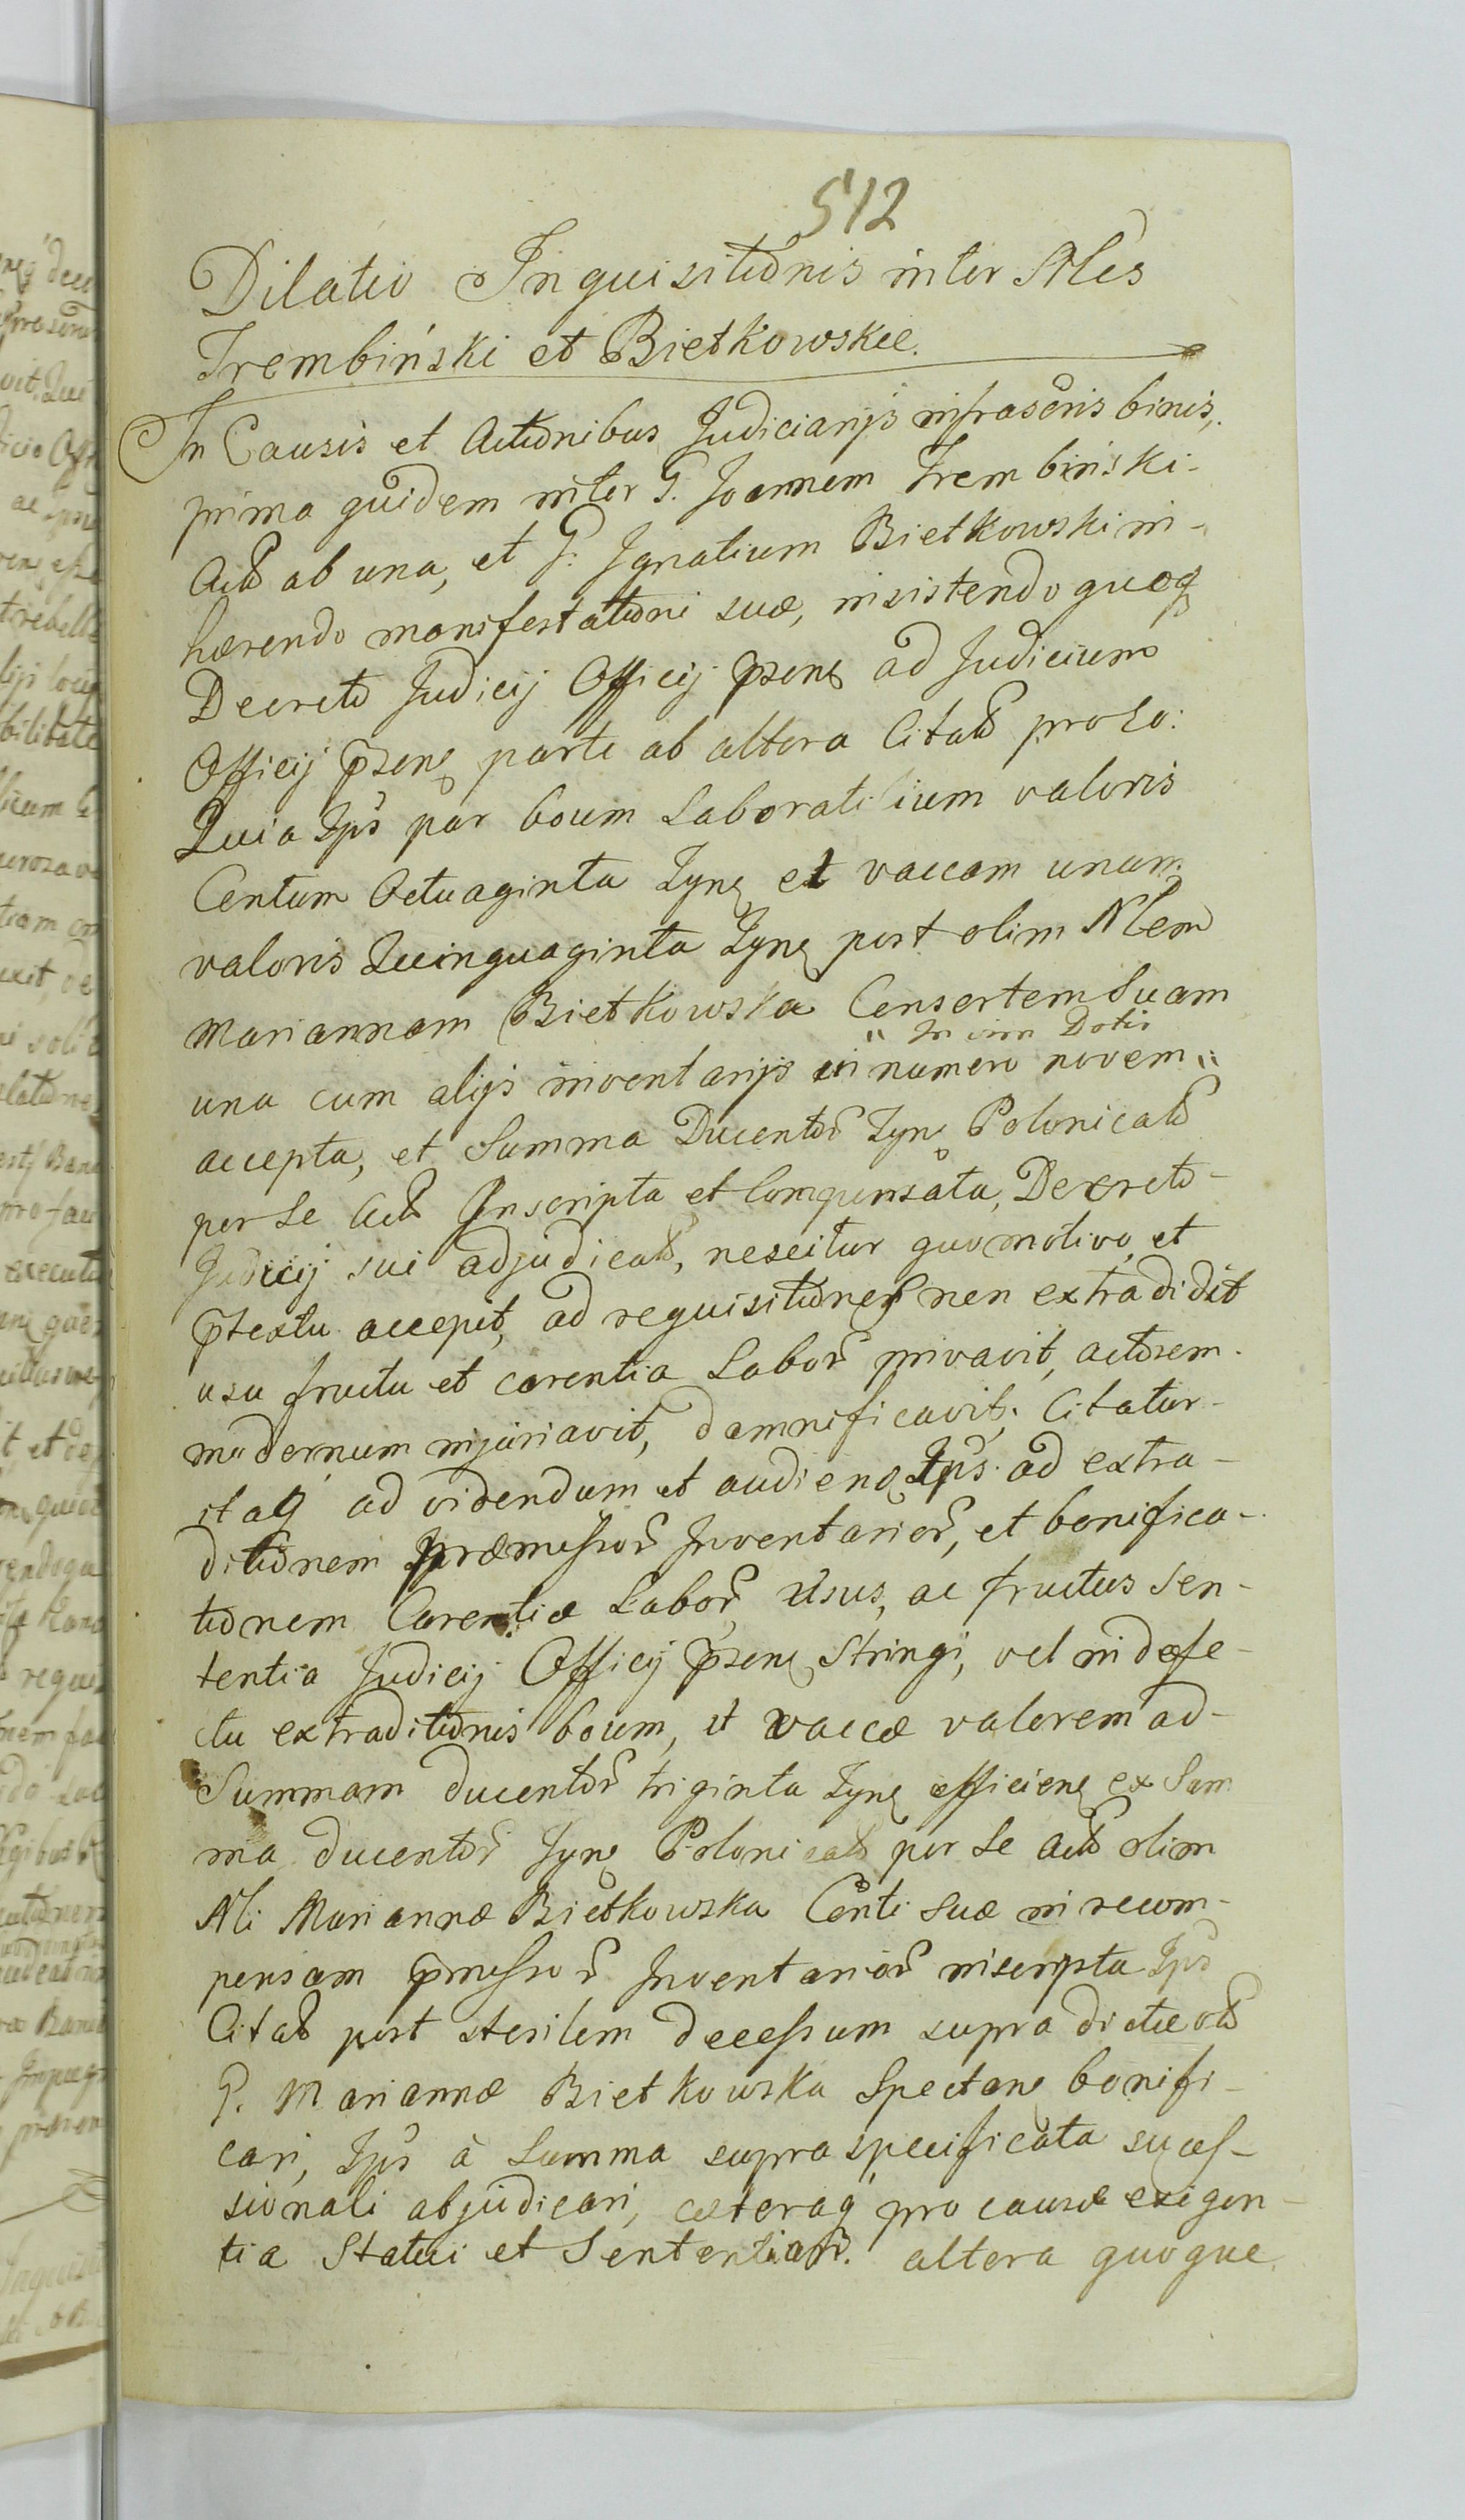 512
Dilatio Inquisitionis inter Nles
Trembiński et Bietkowskie.
In Causis et Actionibus Judiciarijs infrascris binis,
prima quidem inter G. Joannem Trembinski-
Act ab una, et G. Ignatium Bietkowski in-
hærendo manifestationi suæ, insistendo quoq
Decreto Judicij Officij psens ad Judicium
Officij psens parte ab altera Citat pro eo:
Quia Ips par boum Laboratilium valoris
Centum Octuaginta Zyne et vaccam unam
valoris Quinquaginta Zyne post olim Nlem
Mariannam Bietkowska Consortem Suam
" In vim Dotis
una cum alijs inventarijs in numero novem "
accepta, et Summa Ducentor Zyne Polonicat
per se Act Inscripta et Compensata, Decreto-
Judicij sui adjudicat, nescitur quo motivo, et
ptextu accepit, ad requisitiones non extradidit
usu fructu et carentia Labor privavit, actorem-
modernum injuriavit, damnificavit; Citatur-
itaq ad videndum et audiend Ips ad extra-
ditionem præmissor Inventarior, et bonifica-
tionem Carentiæ Labor Usus, ac fructus Sen-
tentia Judicij Officij psens Stringi, vel in defe-
ctu extraditionis boum, et vaccæ valorem ad-
Summam ducentor triginta Zyne efficiens ex Sum
ma ducentor Zyne Polonicat per se Act olim
Nli Mariannæ Bietkowska Conti Suæ in recom-
pensam pmissor Inventarior inscripta Ips
Citat post sterilem decessum supra dictæ olt
G. Mariannæ Bietkowska Spectans bonifi-
cari, Ips à Summa supra specificata suces-
sionali abjudicari, cæteraq pro causæ exigen-
tia Statui et Sententiari. altera quoque